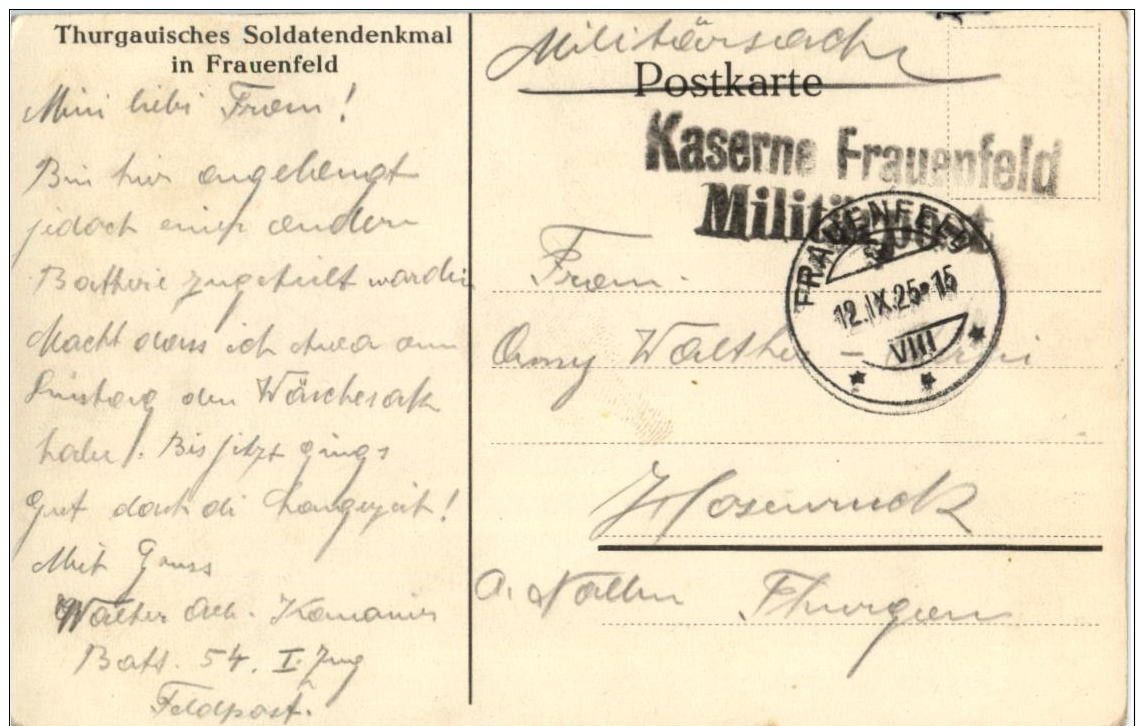 Thurgauisches Soldatendenkmal
in Frauenfeld
Mini liebi Frau!
Bin hier angehengt
jedoch einer andern
Batterie zugeteilt worden
Macht dass ich etwa am
den Wäschesack
haber. Bis jetzt gings
gut doch di Langezeit!
Mit Gruss
Walther Kanonier
Batt. 54. I. Zug
Feldpost.
Militärsache
Postkarte
Kaserne Frauenfeld
Militärpost
FRAUENFELD
12.IX.25-15
VIII
Frau.
Walther -
Hosenruck
Thurgau